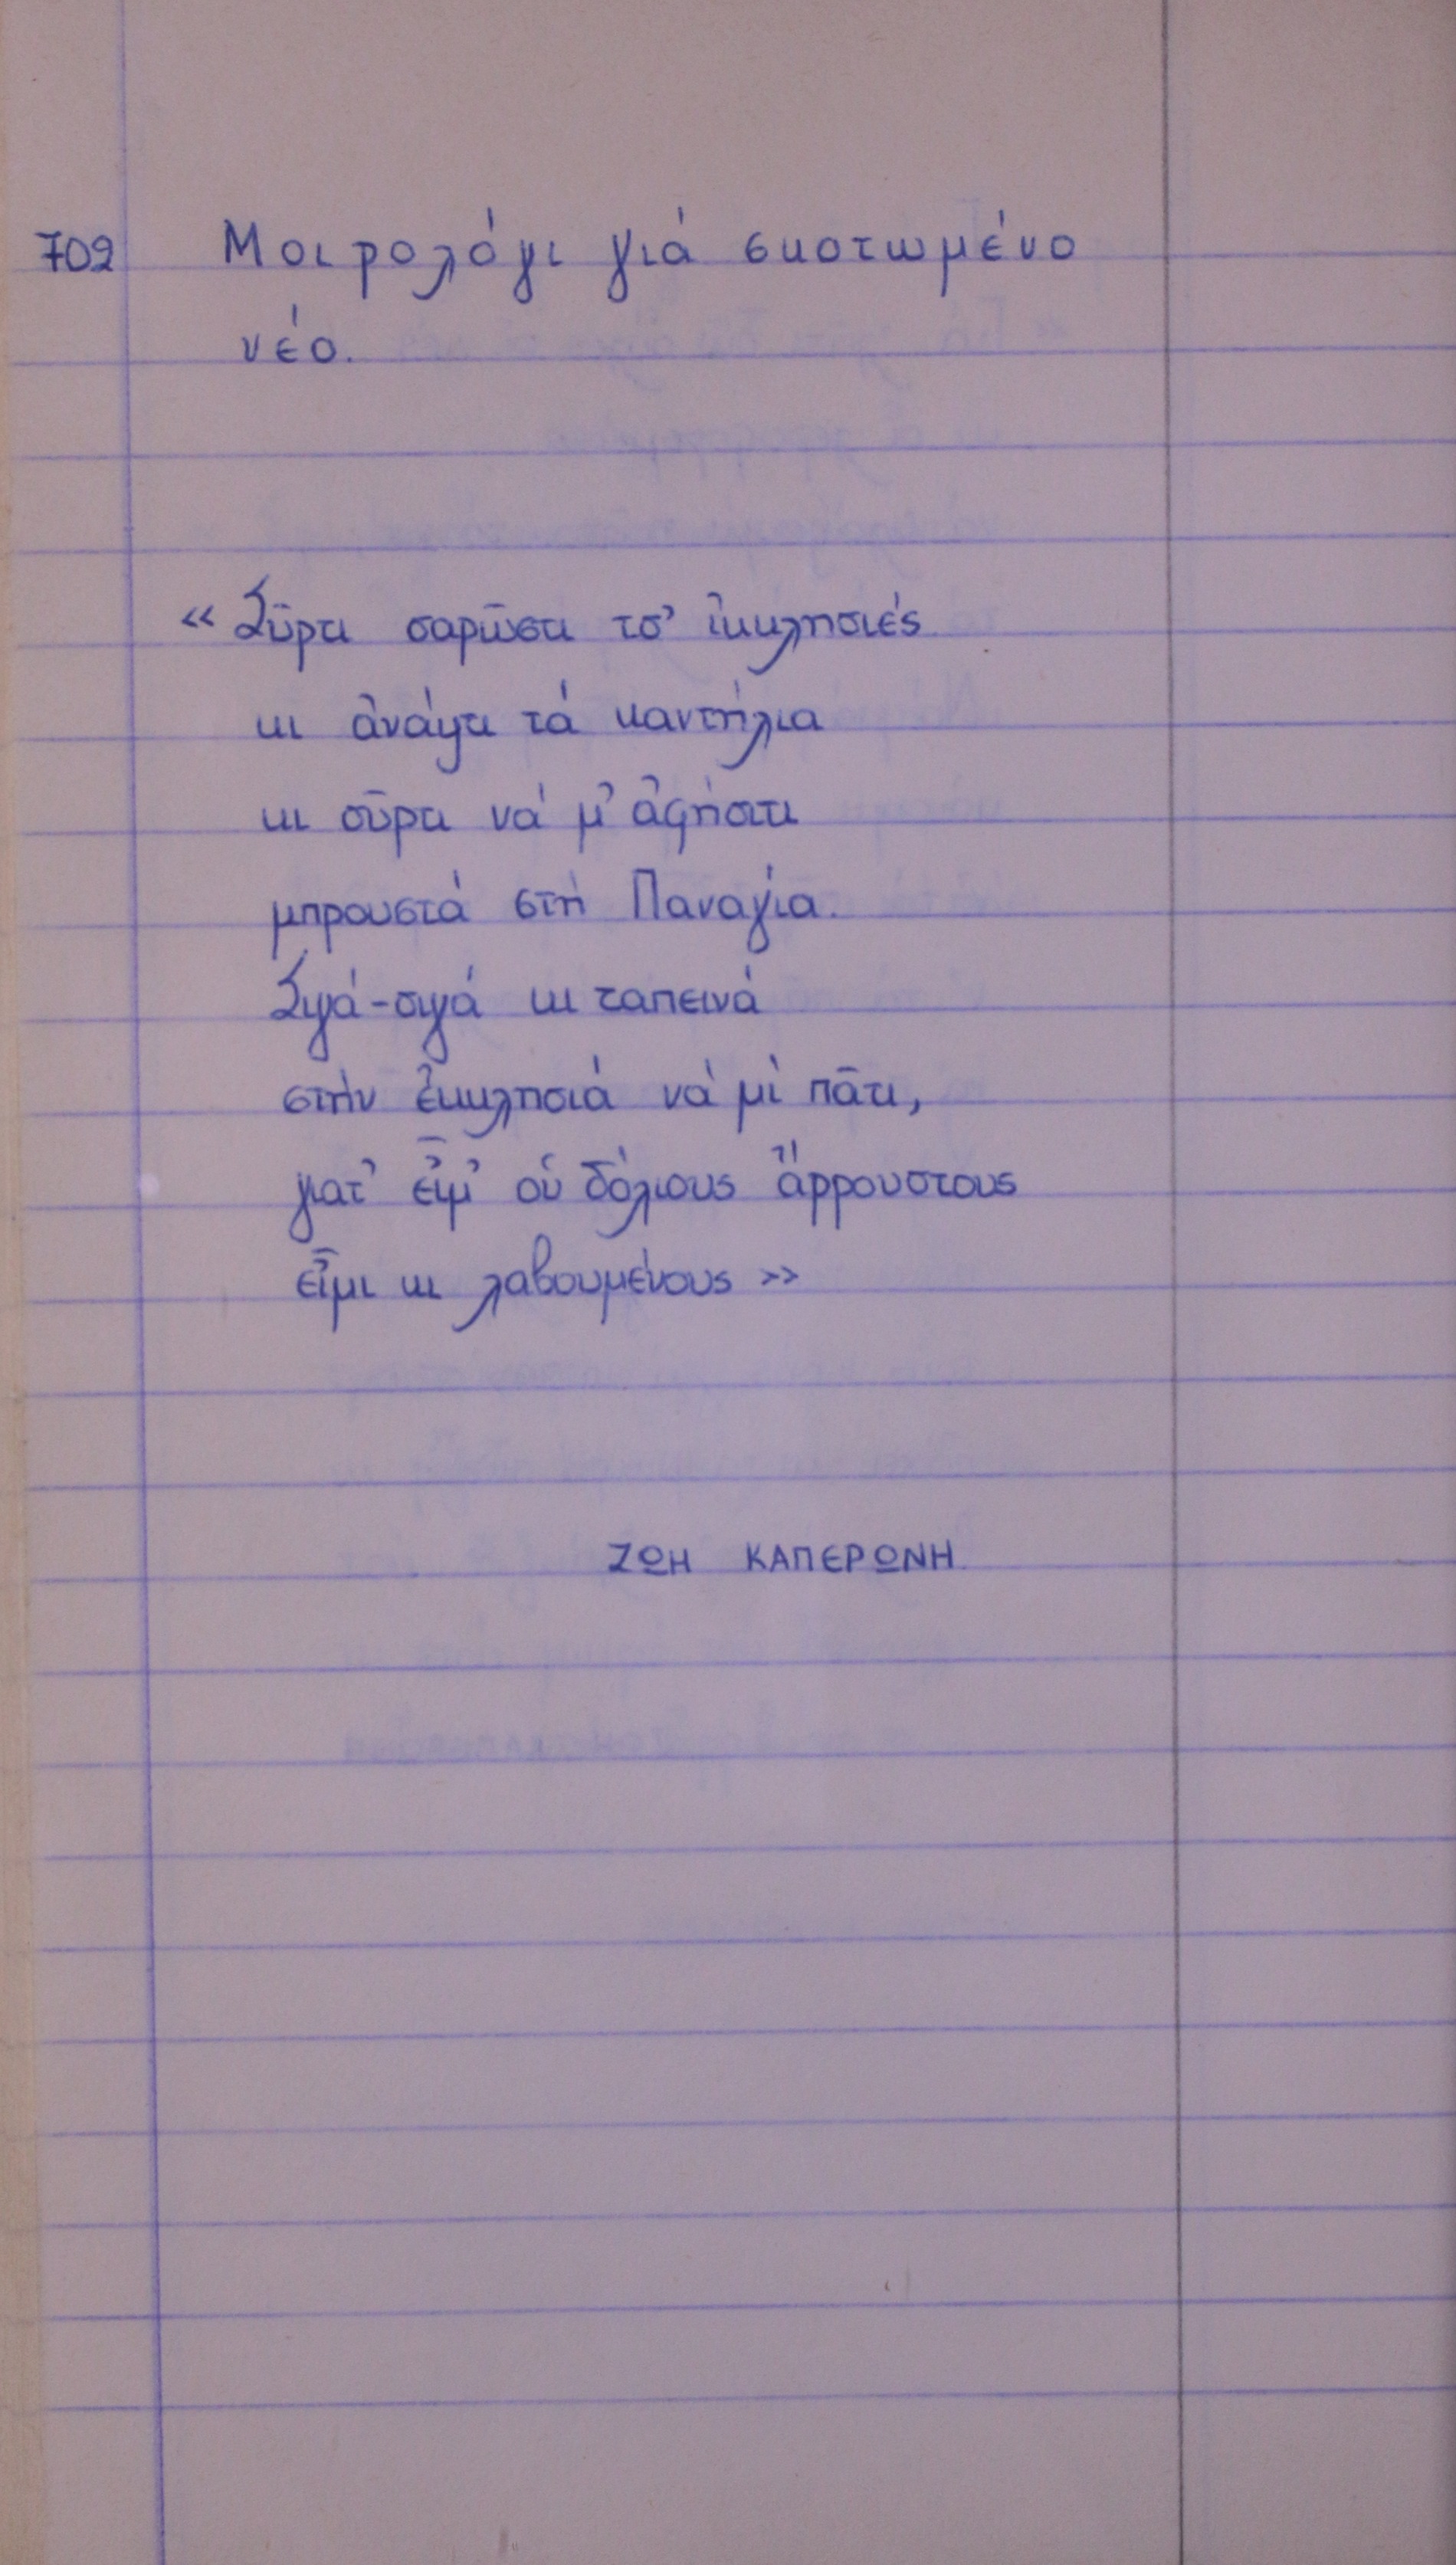 702 Μοιρολόγι γιά σκοτωμένο
νέο.
«Σῦρτι σαρῶστι τσ' ἰκκλησιές
κι ἀνάψτι τά καντήλια
κι σῦρτι νά μ' ἀφήστι
μπρουστά στή Παναγία.
Σιγά-σιγά κι ταπεινά
στήν ἐκκλησιά νά μί πᾶτι,
γιατ' εἶμ' οὑ δόλιους ἄρρουστους
εἶμι κι λαβουμένους»
ΖΩΗ ΚΑΠΕΡΩΝΗ